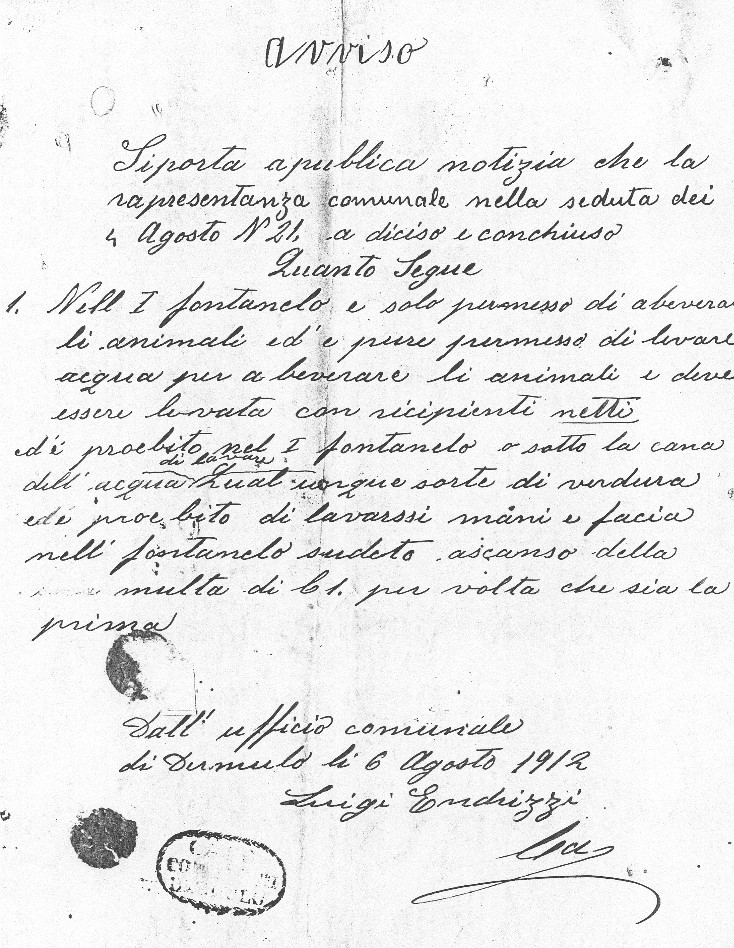 avviso
Si porta a publica notizia che la
rapresentanza comunale nella seduta dei
4 Agosto N 21. a diciso e conchiuso
Quanto Segue
1. Nell I fontanelo e solo permesso di abevera
li animali ed' e pure permesso di levare
acqua per abeverare li animali e deve
essere levata con ricipienti netti
ed é proebito nel I fontanelo o sotto la cana
di lavare
dell' acqua Qual unque sorte di verdura
ed é proebito di lavarssi mani e facia
nell' fontanelo sudeto ascanso della
multa di C 1. per volta che sia la
prima
Dall' ufficio comunale
di Dermulo li 6 Agosto 1912
Luigi Endrizzi